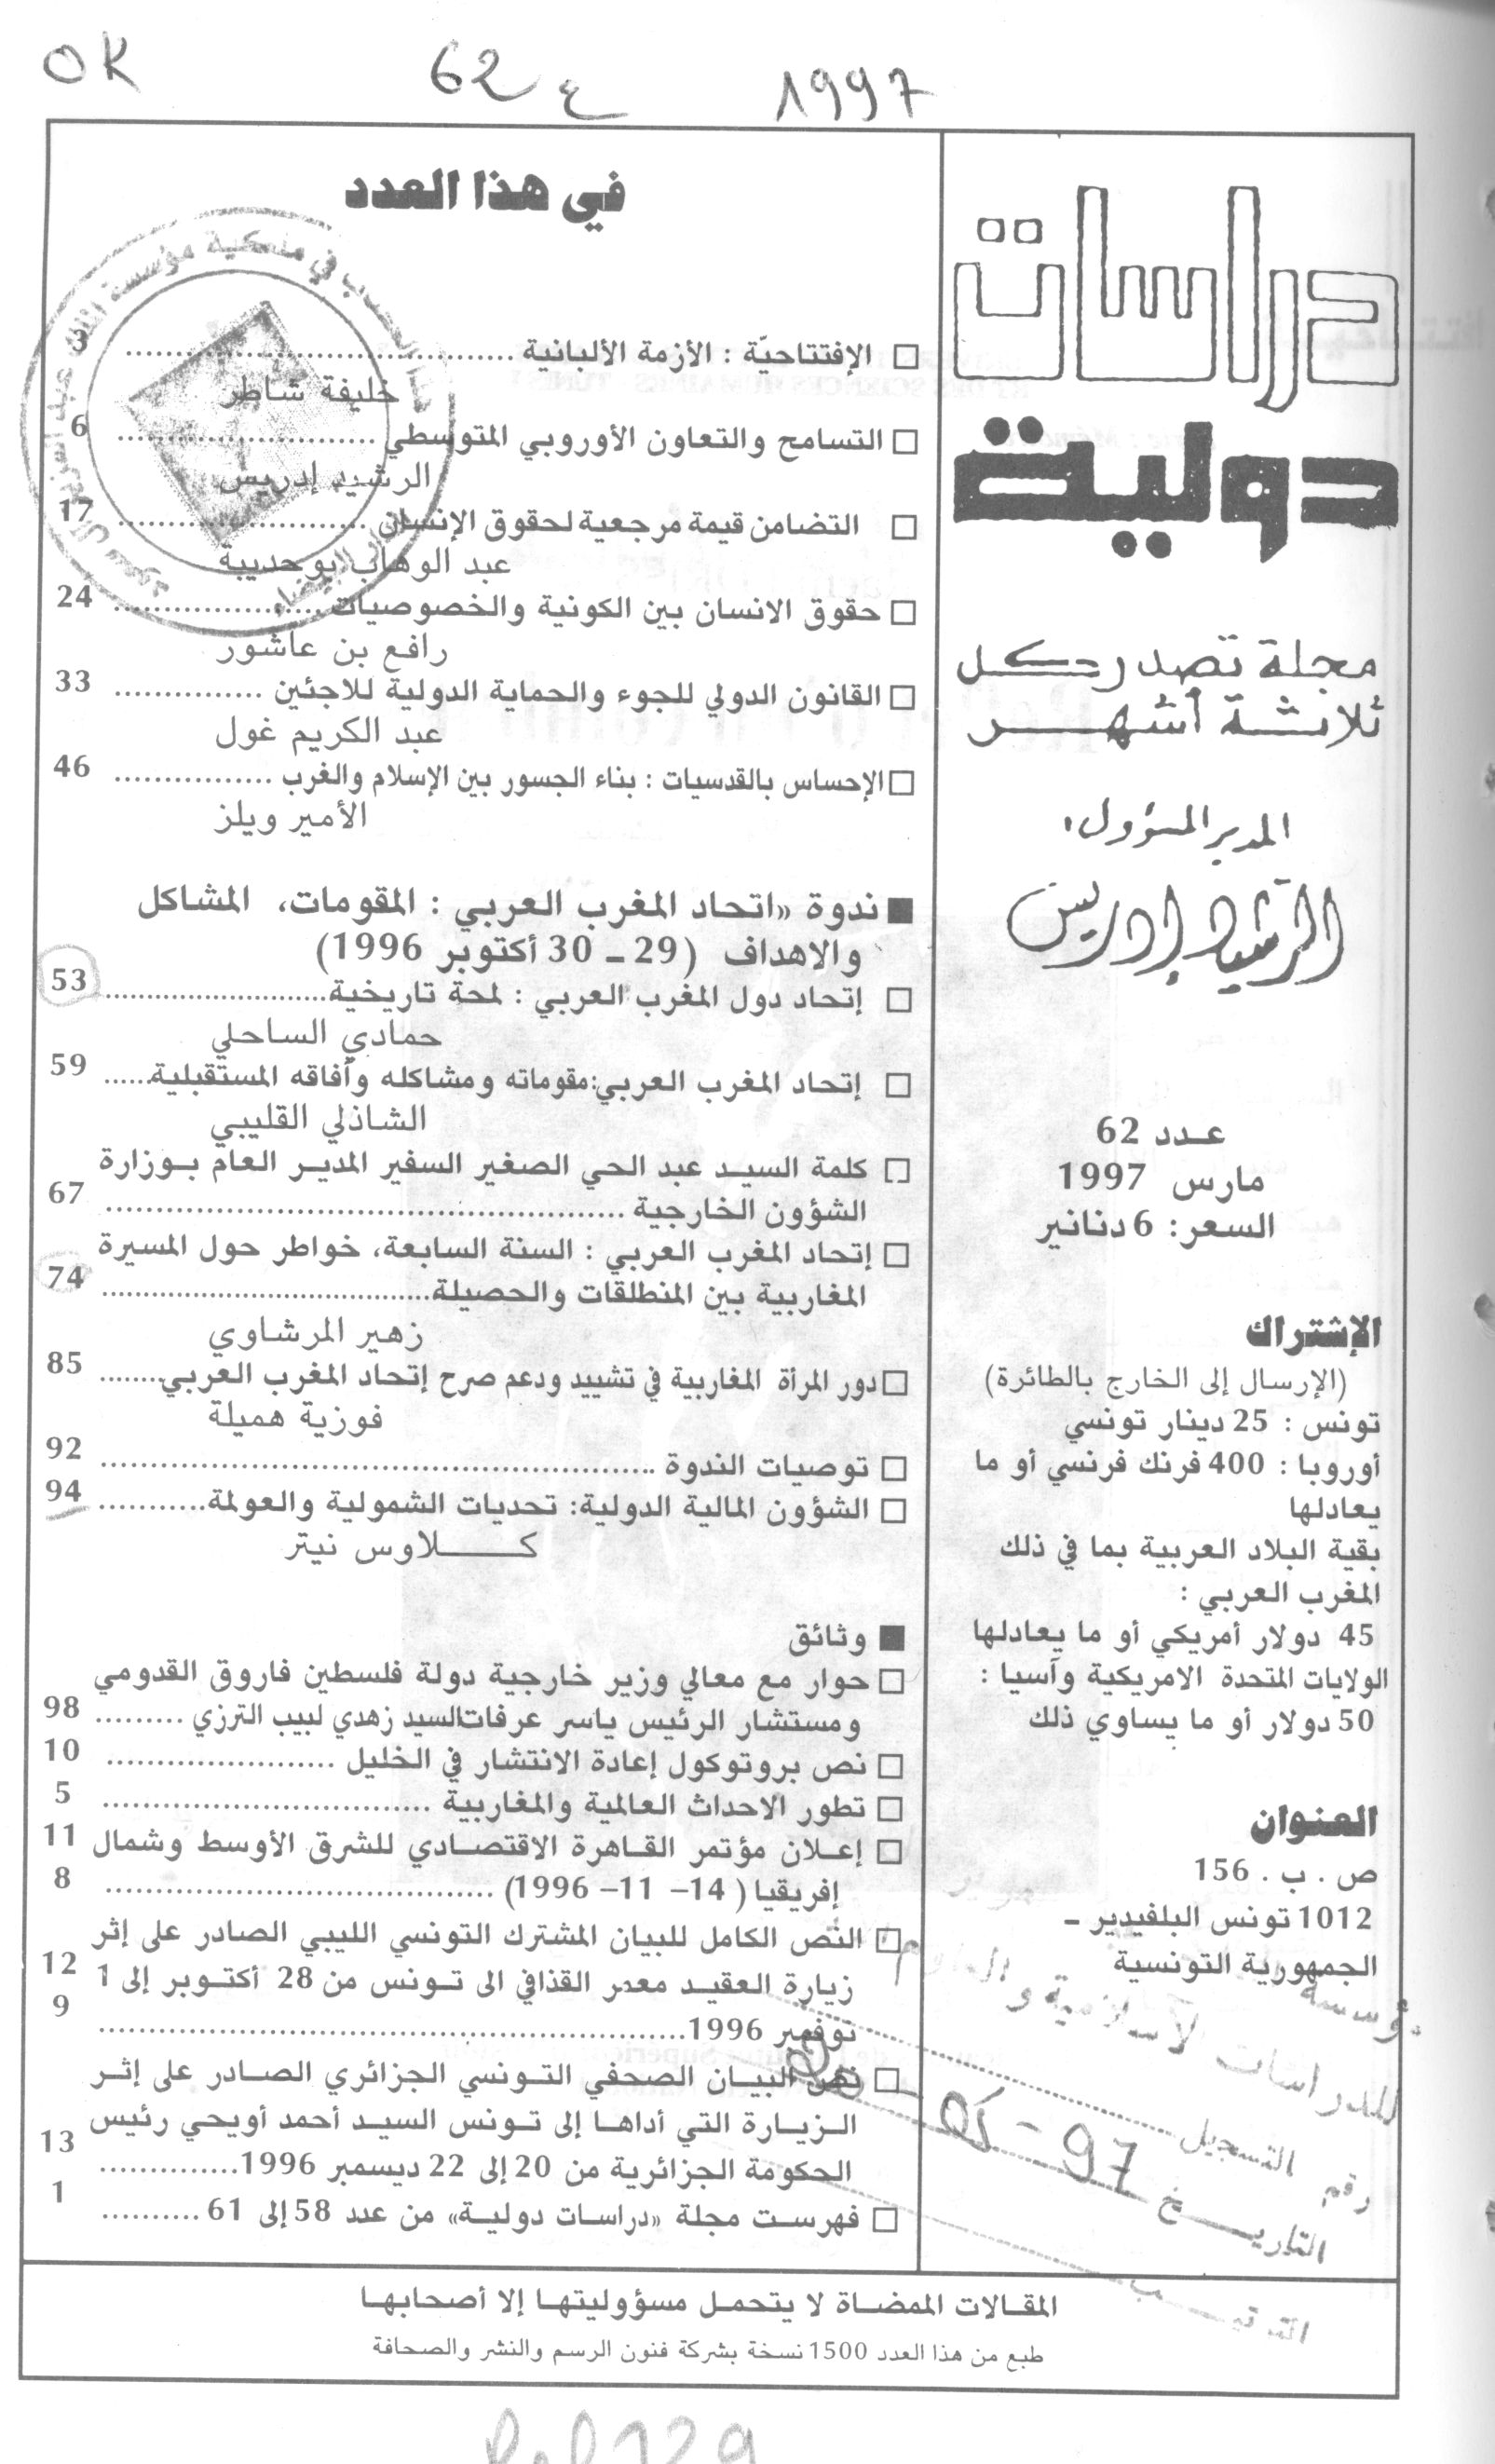 OK
62 ع
1997
دراسات
دولية
مجلة تصدر كل
ثلاثة أشهر
المدير المسؤول:
الرشيد إدريس
عدد 62
مارس 1997
السعر: 6 دنانير
الإشتراك
(الإرسال إلى الخارج بالطائرة)
تونس : 25 دينار تونسي
أوروبا : 400 فرنك فرنسي أو ما
يعادلها
بقية البلاد العربية بما في ذلك
المغرب العربي :
45 دولار أمريكي أو ما يعادلها
الولايات المتحدة الامريكية وآسيا :
50 دولار أو ما يساوي ذلك
العنوان
ص . ب . 156
1012 تونس البلفيدير –
الجمهورية التونسية
في هذا العدد
□ الإفتتاحيّة : الأزمة الألبانية ........ 3
خليفة شاطر
□ التسامح والتعاون الأوروبي المتوسطي ........ 6
الرشيد إدريس
□ التضامن قيمة مرجعية لحقوق الإنسان ........ 17
عبد الوهاب بوحديبة
□ حقوق الانسان بين الكونية والخصوصيات ........ 24
رافع بن عاشور
□ القانون الدولي للجوء والحماية الدولية للاجئين ........ 33
عبد الكريم غول
□ الإحساس بالقدسيات : بناء الجسور بين الإسلام والغرب ........ 46
الأمير ويلز
■ ندوة «اتحاد المغرب العربي : المقومات، المشاكل
والاهداف (29 – 30 أكتوبر 1996)
□ إتحاد دول المغرب العربي : لمحة تاريخية ........ 53
حمادي الساحلي
□ إتحاد المغرب العربي: مقوماته ومشاكله وآفاقه المستقبلية ...... 59
الشاذلي القليبي
□ كلمة السيد عبد الحي الصغير السفير المدير العام بوزارة
الشؤون الخارجية ........ 67
□ إتحاد المغرب العربي : السنة السابعة، خواطر حول المسيرة
المغاربية بين المنطلقات والحصيلة ........ 74
زهير المرشاوي
□ دور المرأة المغاربية في تشييد ودعم صرح إتحاد المغرب العربي ........ 85
فوزية هميلة
□ توصيات الندوة ........ 92
□ الشؤون المالية الدولية: تحديات الشمولية والعولمة ........ 94
كلاوس نيتر
■ وثائق
□ حوار مع معالي وزير خارجية دولة فلسطين فاروق القدومي
ومستشار الرئيس ياسر عرفات السيد زهدي لبيب الترزي ........ 98
□ نص بروتوكول إعادة الانتشار في الخليل ........ 10
□ تطور الاحداث العالمية والمغاربية ........ 5
□ إعلان مؤتمر القاهرة الاقتصادي للشرق الأوسط وشمال 11
إفريقيا (14– 11– 1996) ........ 8
□ النص الكامل للبيان المشترك التونسي الليبي الصادر على إثر
زيارة العقيد معمر القذافي الى تونس من 28 أكتوبر إلى 1 12
نوفمبر 1996 ........ 9
□ نص البيان الصحفي التونسي الجزائري الصادر على إثر
الزيارة التي أداها إلى تونس السيد أحمد أويحي رئيس 13
الحكومة الجزائرية من 20 إلى 22 ديسمبر 1996 ........ 1
□ فهرست مجلة «دراسات دولية» من عدد 58 إلى 61 ........
للدراسات الاسلامية والعلوم
رقم التسجيل
التاريخ
المقالات الممضاة لا يتحمل مسؤوليتها إلا أصحابها
طبع من هذا العدد 1500 نسخة بشركة فنون الرسم والنشر والصحافة